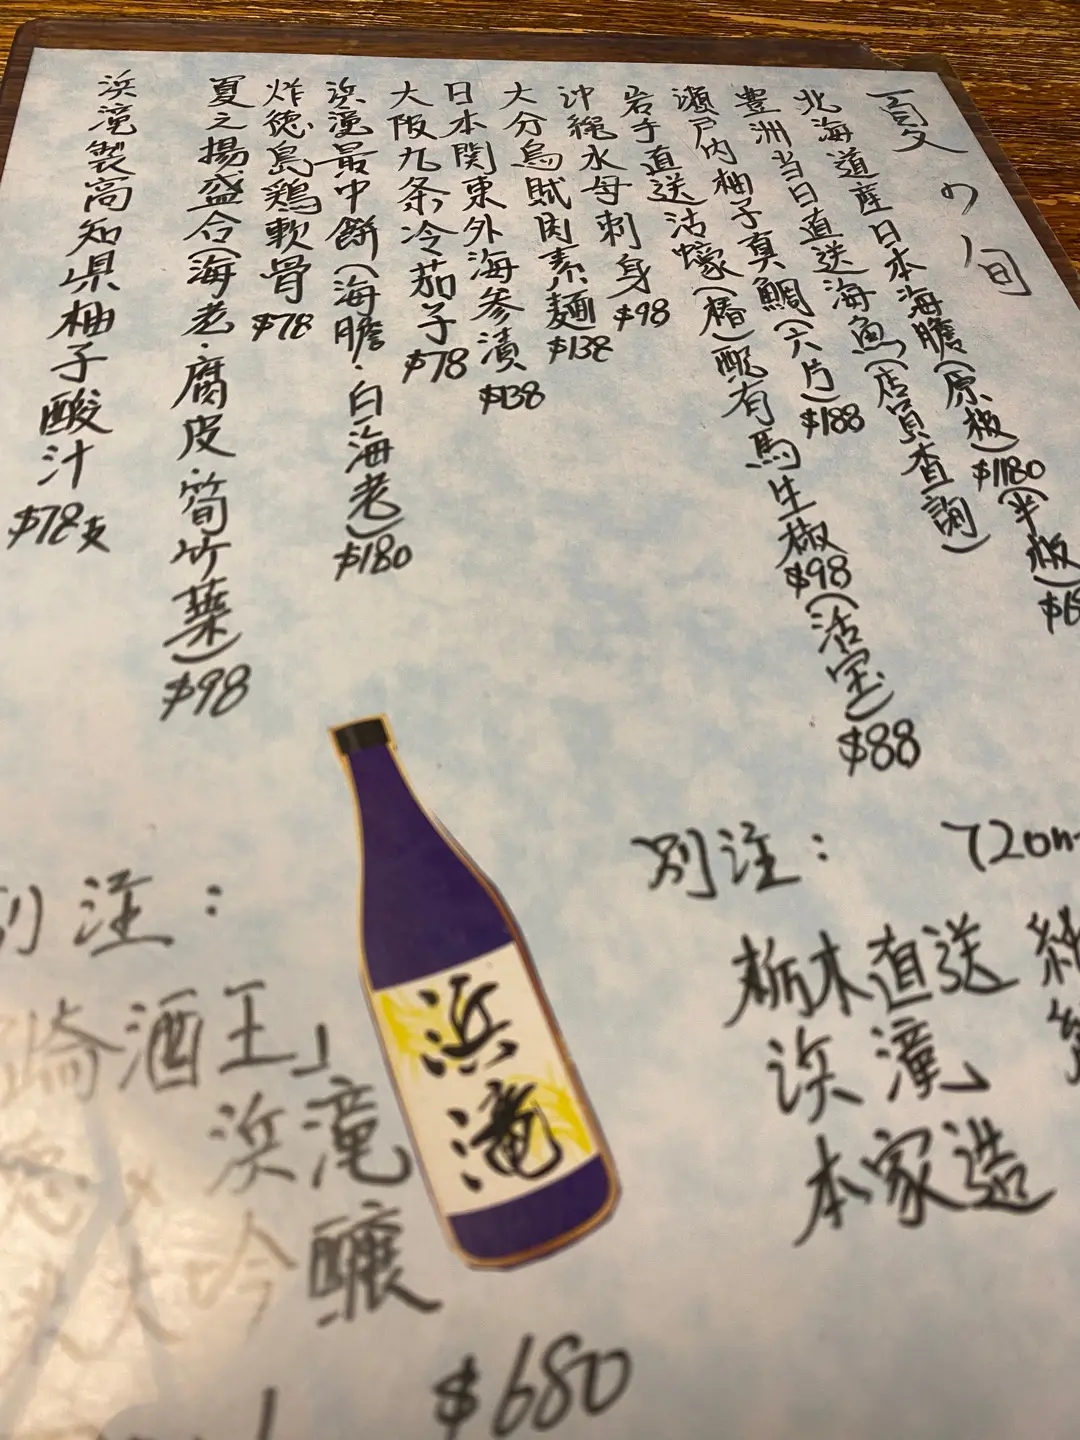 夏の旬
北海道産日本海膽(原板)$1180(半板)
豊洲当日直送海魚(店員查詢)
瀬戸内柚子真鯛(六片)$188
岩手直送活蠔(樁)配有馬生椒$98(活宝)$88
沖縄水母刺身$98
大分烏賊肉素麺$138
日本関東外海参漬$138
大阪九条冷茄子$78
浜滝最中餅(海膽·白海老)$180
炸徳島鶏軟骨$78
夏之揚盛合(海老·腐皮·筍竹葉)$98
浜滝製高知県柚子酸汁$78支
別注:
栃木直送
浜滝
本家造
別注:
崎酒王」
浜滝
大吟醸
$680
浜滝